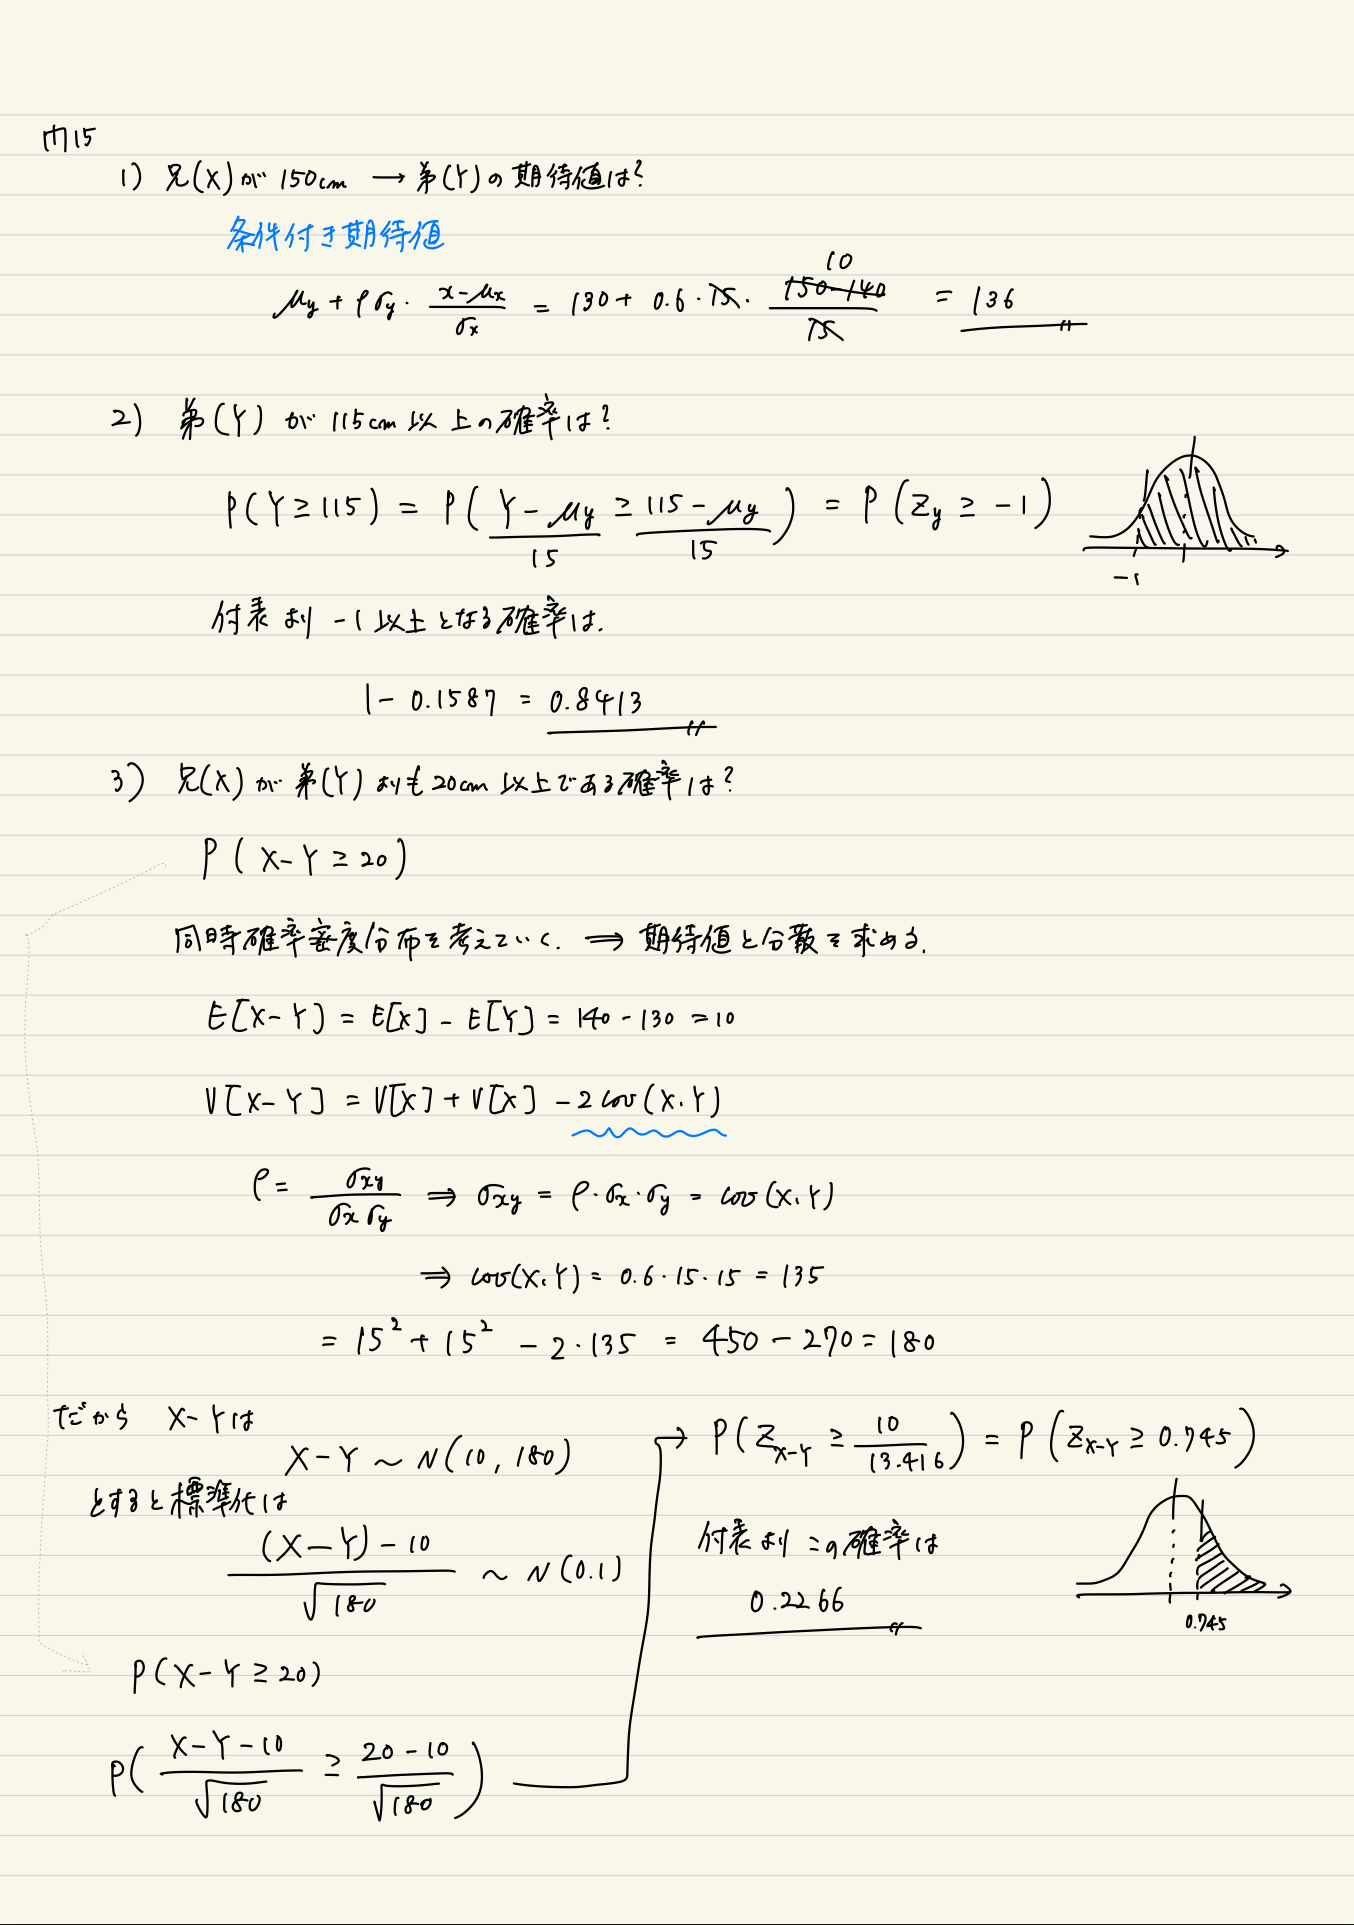 問15
1) 兄(X)が150cm → 弟(Y)の期待値は?
条件付き期待値
μy + ρσy · (x-μx)/σx = 130 + 0.6 · 15 · (150-140)/15 = 136
10
2) 弟(Y)が115cm以上の確率は?
P(Y≥115) = P((Y-μy)/15 ≥ (115-μy)/15) = P(Zy ≥ -1)
-1
付表より -1以上となる確率は.
1 - 0.1587 = 0.8413
3) 兄(X)が弟(Y)よりも20cm以上である確率は?
P(X-Y ≥ 20)
同時確率密度分布を考えていく. ⇒ 期待値と分散を求める.
E[X-Y] = E[X] - E[Y] = 140 - 130 = 10
V[X-Y] = V[X] + V[X] - 2cov(X.Y)
ρ = σxy/(σxσy) ⇒ σxy = ρ·σx·σy = cov(X.Y)
⇒ cov(X.Y) = 0.6·15·15 = 135
= 15² + 15² - 2·135 = 450 - 270 = 180
だから X-Yは
X-Y ~ N(10, 180)
とすると標準化は
((X-Y)-10)/√180 ~ N(0.1)
P(X-Y ≥ 20)
P((X-Y-10)/√180 ≥ (20-10)/√180)
→ P(Z_{X-Y} ≥ 10/13.416) = P(Z_{X-Y} ≥ 0.745)
付表より この確率は
0.2266
0.745